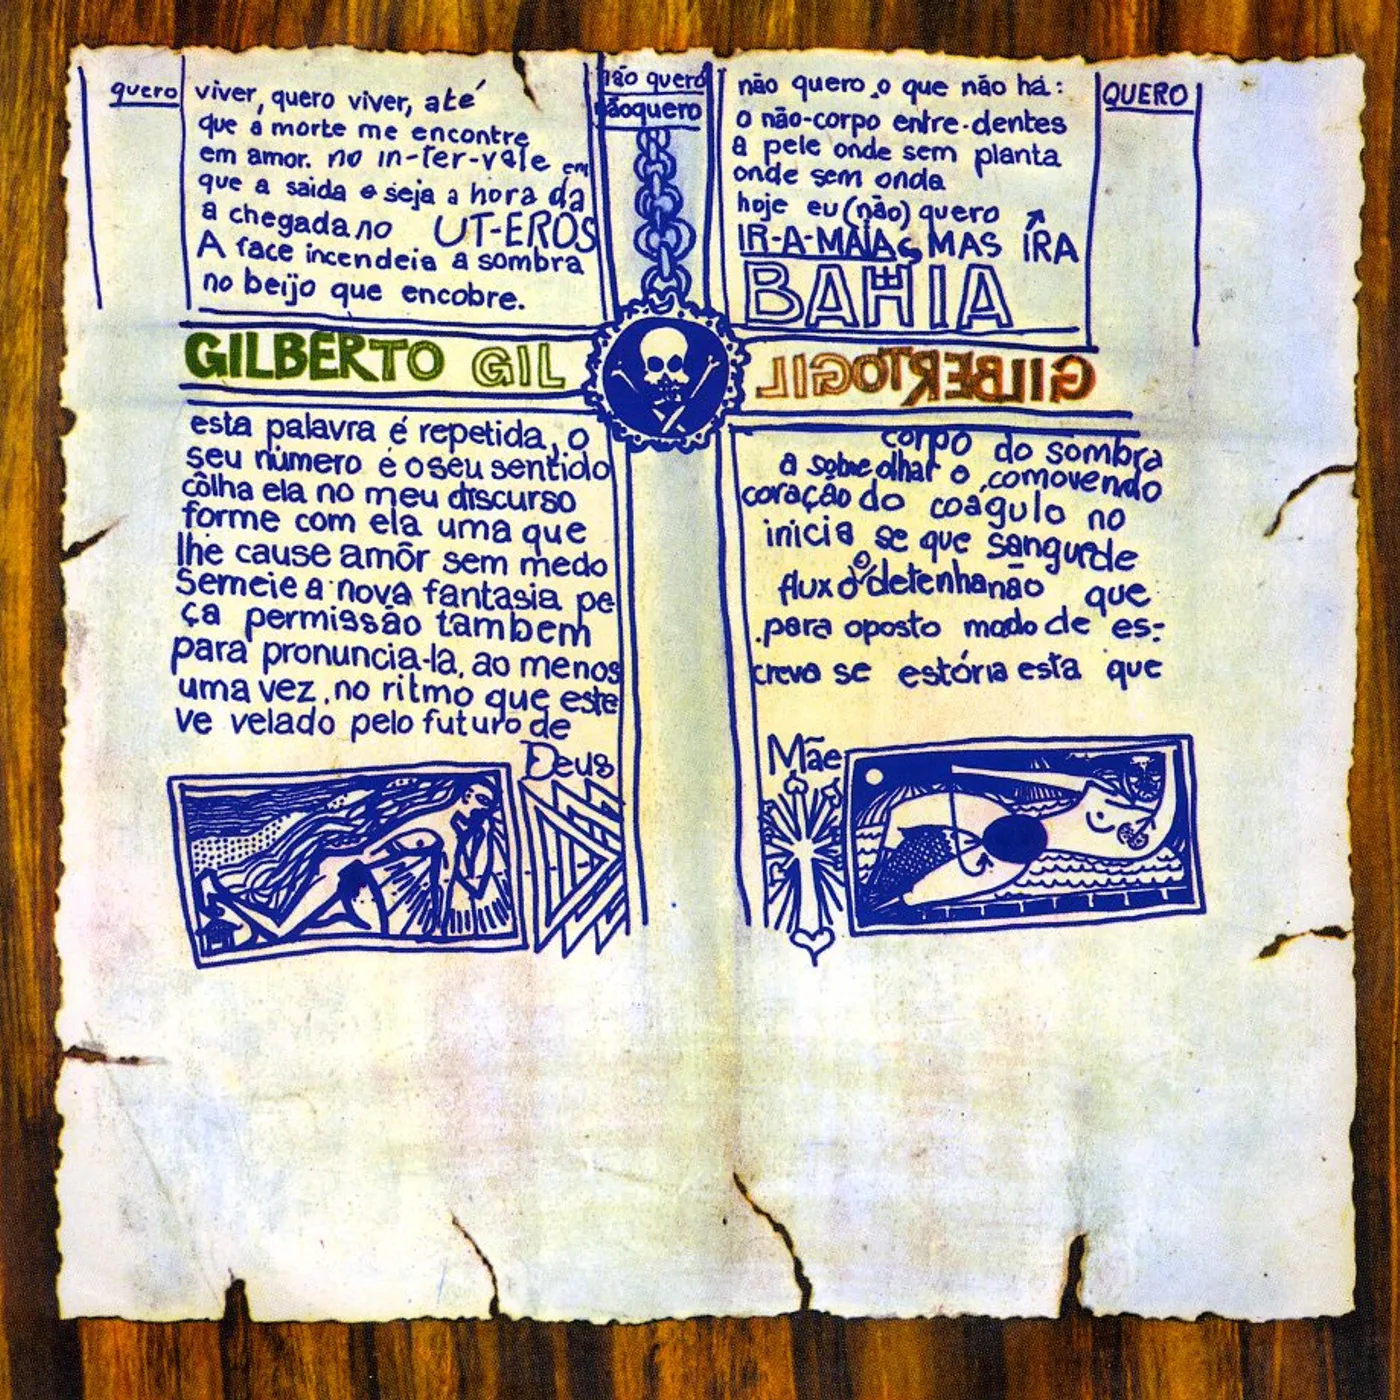 quero
viver, quero viver, até
que a morte me encontre
em amor. no in-ter-vale em
que a saida e seja a hora da
a chegada no UT-EROS
A face incendeia a sombra
no beijo que encobre.
não quero
nãoquero
não quero o que não há:
o não-corpo entre-dentes
a pele onde sem planta
onde sem onda
hoje eu (não) quero
IR-A-MAIA MAS ÍRA
BAHIA
QUERO
GILBERTO GIL
GILBERTO GIL
esta palavra é repetida, o
seu número é o seu sentido
côlha ela no meu discurso
forme com ela uma que
lhe cause amôr sem medo
Semeie a nova fantasia pe
ça permissão tambem
para pronuncia-la, ao menos
uma vez, no ritmo que este
ve velado pelo futuro de
Deus
corpo do sombra
a sobre olhar o comovendo
coração do coágulo no
inicia se que sangue de
fluxo o detenha não que
para oposto modo de es-
creva se estória esta que
Mãe